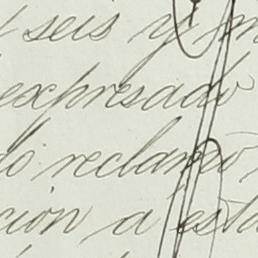 seis y
expresado
do reclamó
ción a esta